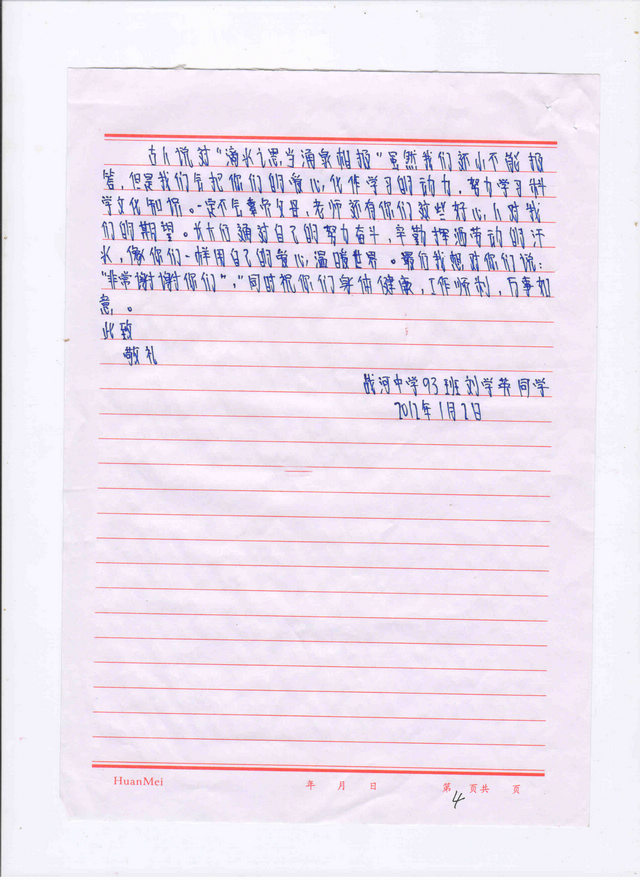 古人说过“滴水之恩当涌泉相报”虽然我们还小不能报
答，但是我们会把你们的爱心，化作学习的动力，努力学习科
学文化知识。一定不会辜负父母，老师还有你们这些好心人对我
们的期望。长大们通过自己的努力奋斗，辛勤挥洒劳动的汗
水，像你们一样用自己的爱心，温暖世界。最后我想对你们说：
“非常谢谢你们”，”同时祝你们身体健康，工作顺利，万事如
意。
此致
敬礼
战河中学93班刘学英同学
2012年1月2日
HuanMei
年 月 日
第4页共 页